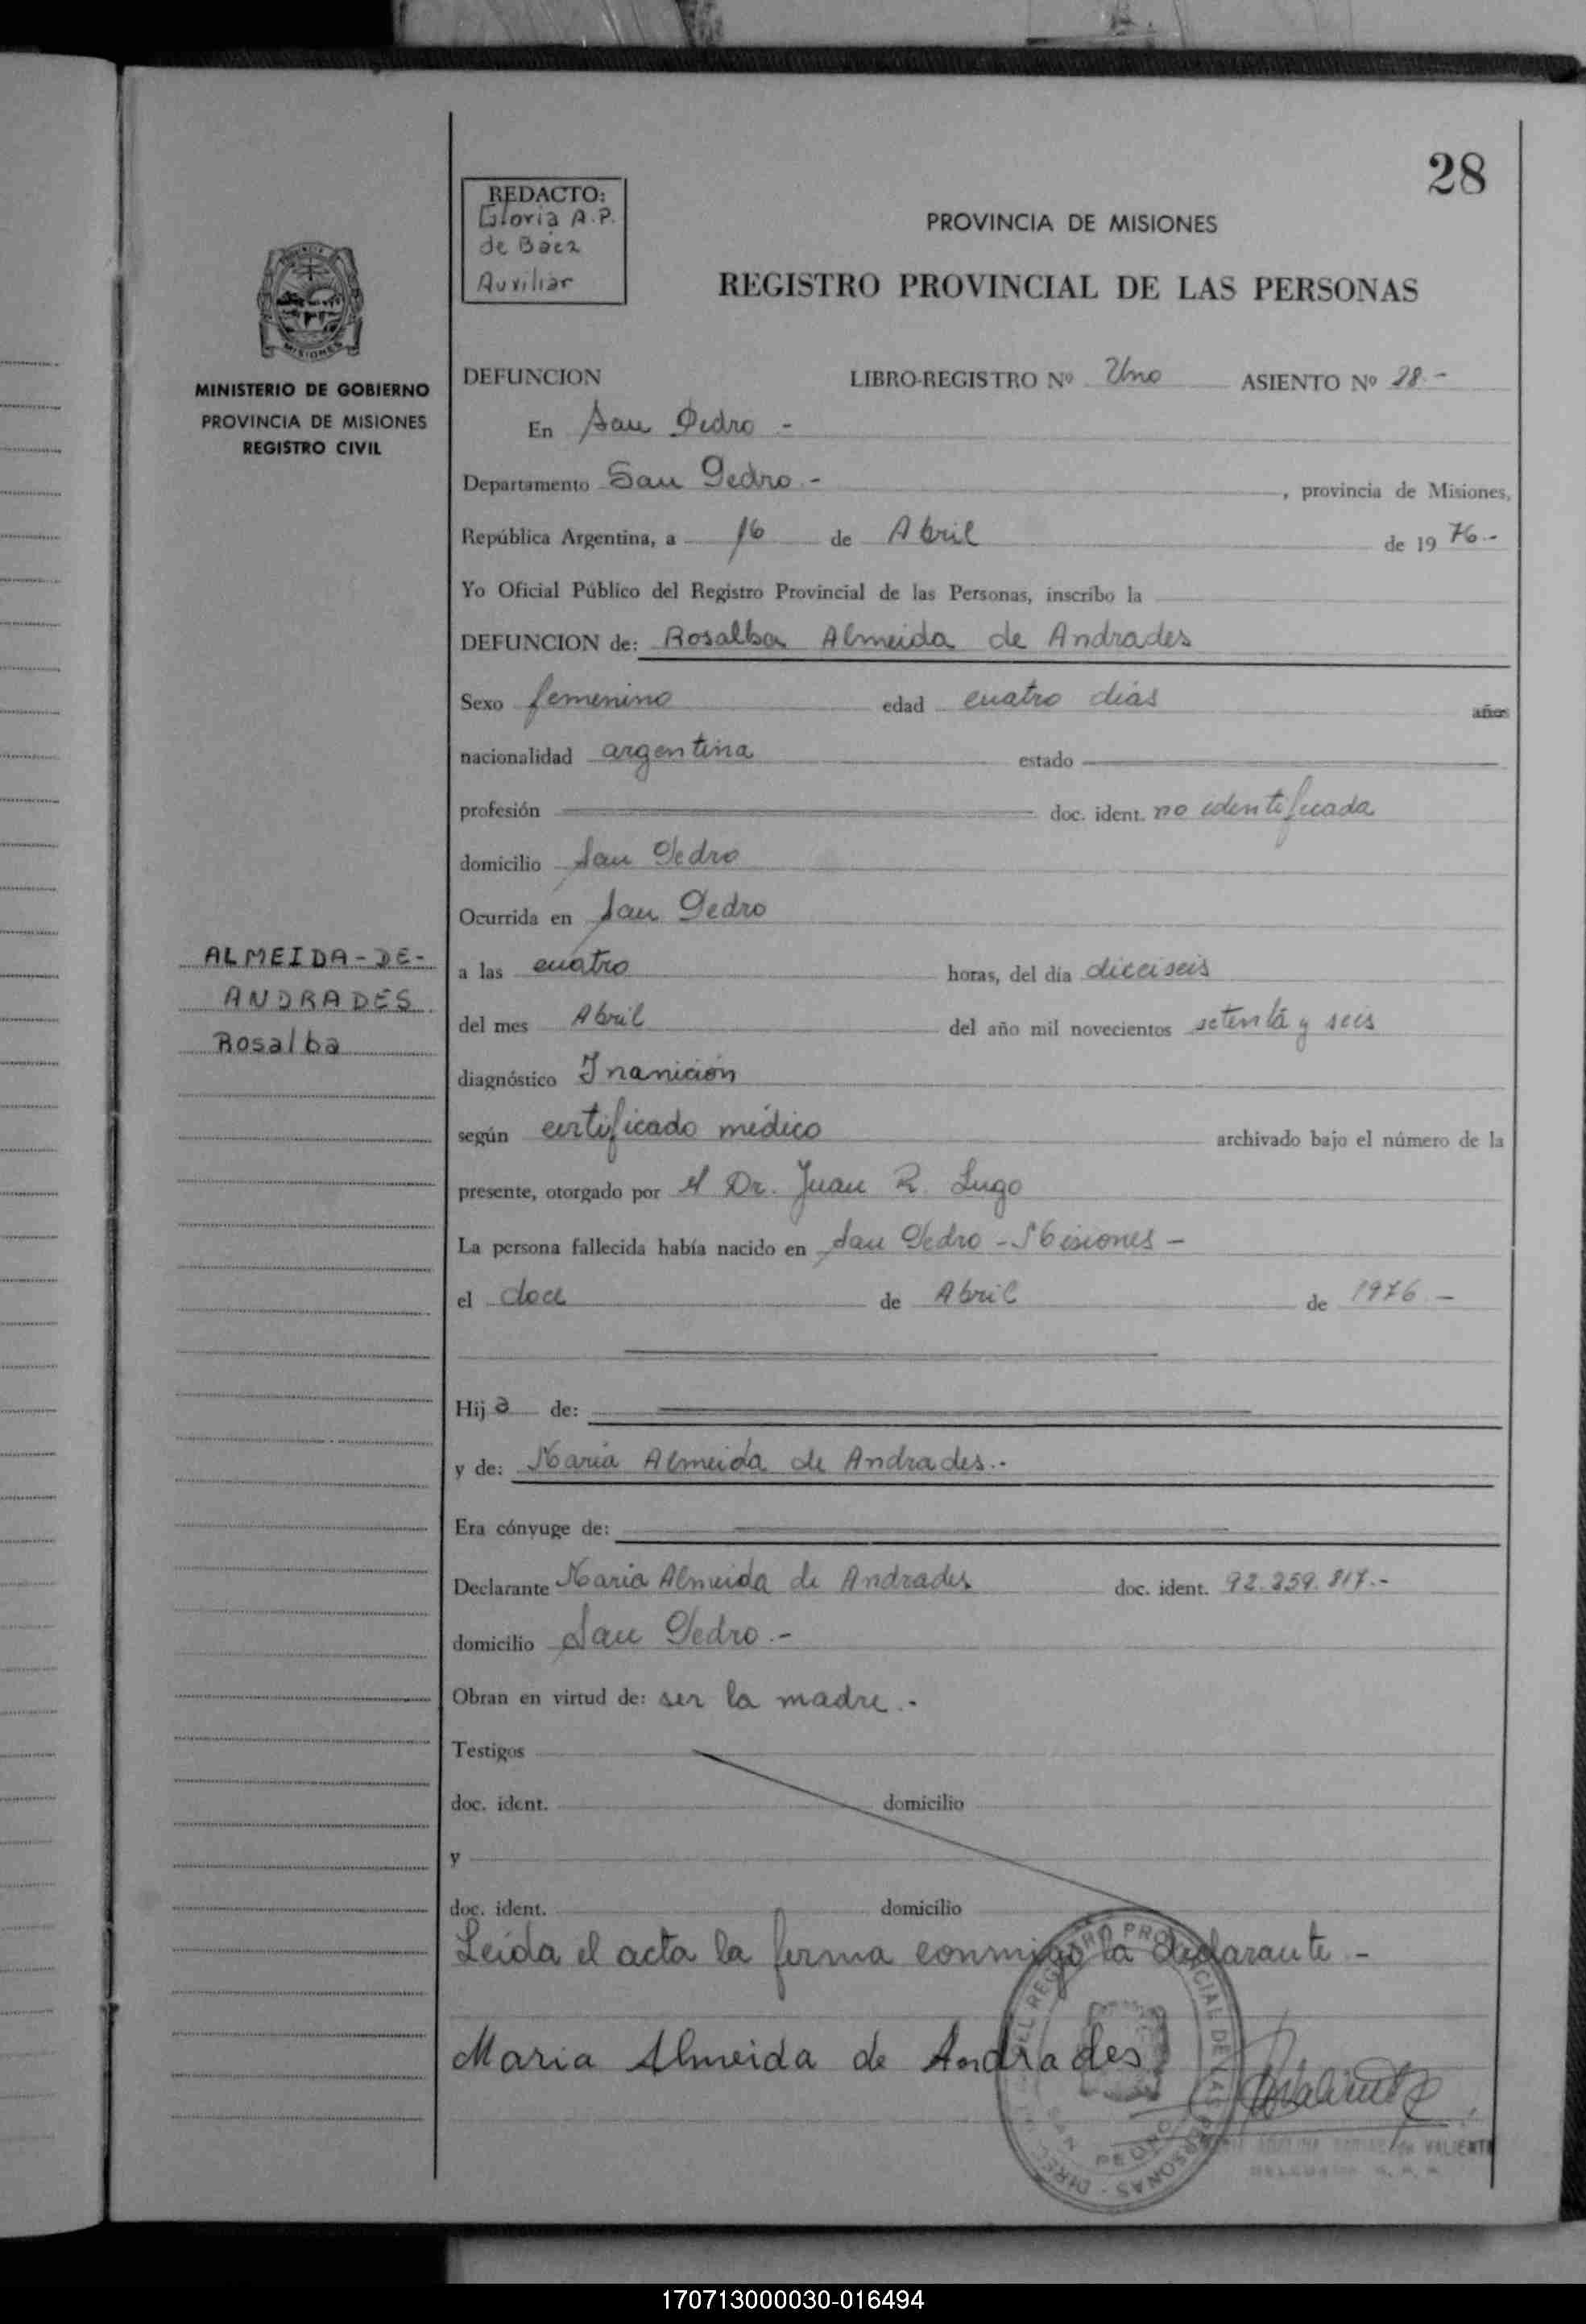 28
REDACTO:
Gloria A.P.
de Báez
Auxiliar
PROVINCIA DE MISIONES
REGISTRO PROVINCIAL DE LAS PERSONAS
MISIONES
MINISTERIO DE GOBIERNO
PROVINCIA DE MISIONES
REGISTRO CIVIL
DEFUNCION LIBRO-REGISTRO Nº Uno ASIENTO Nº 28.-
En San Pedro -
Departamento San Pedro.- , provincia de Misiones,
República Argentina, a 16 de Abril de 1976.-
Yo Oficial Público del Registro Provincial de las Personas, inscribo la
DEFUNCION de: Rosalba Almeida de Andrades
Sexo femenino edad cuatro dias años
nacionalidad argentina estado
profesión doc. ident. no identificada
domicilio San Pedro
Ocurrida en San Pedro
ALMEIDA-DE-
ANDRADES
Rosalba
a las cuatro horas, del día dieciseis
del mes Abril del año mil novecientos setenta y seis
diagnóstico Inanición
según certificado médico archivado bajo el número de la
presente, otorgado por el Dr. Juan R. Lugo
La persona fallecida había nacido en San Pedro - Misiones -
el doce de Abril de 1976.-
Hija de:
y de: Maria Almeida de Andrades.-
Era cónyuge de:
Declarante Maria Almeida de Andrades doc. ident. 92.259.817.-
domicilio San Pedro.-
Obran en virtud de: ser la madre.-
Testigos
doc. ident. domicilio
y
doc. ident. domicilio
Leída el acta la firma conmigo la declarante -
Maria Almeida de Andrades
REGISTRO PROVINCIAL DE LAS PERSONAS
SAN PEDRO
VALIENTE
170713000030-016494